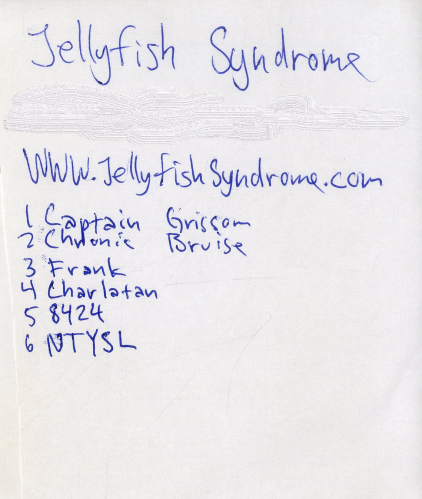 Jellyfish Syndrome
WWW.JellyfishSyndrome.com
1 Captain Grissom
2 Chronic Bruise
3 Frank
4 Charlatan
5 8424
6 NTYSL